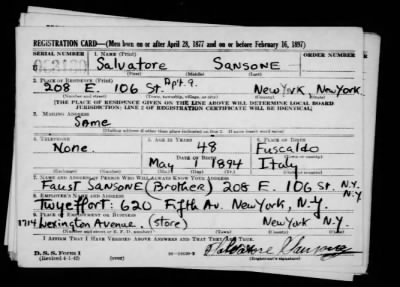 REGISTRATION CARD—(Men born on or after April 28, 1877 and on or before February 16, 1897)
SERIAL NUMBER 1. NAME (Print) ORDER NUMBER
U Salvatore SANSONE
(First) (Middle) (Last)
2. PLACE OF RESIDENCE (Print) Apt. 9.
208 E. 106 St. New York New York.
(Number and street) (Town, township, village, or city) (County) (State)
[THE PLACE OF RESIDENCE GIVEN ON THE LINE ABOVE WILL DETERMINE LOCAL BOARD
JURISDICTION; LINE 2 OF REGISTRATION CERTIFICATE WILL BE IDENTICAL]
3. MAILING ADDRESS
Same
[Mailing address if other than place indicated on line 2. If same insert word same]
4. TELEPHONE 5. AGE IN YEARS 6. PLACE OF BIRTH
None. 48 Fuscaldo
DATE OF BIRTH
May 1894 Italy
(Exchange) (Number) (Mo.) (Day) (Yr.) (State or country)
7. NAME AND ADDRESS OF PERSON WHO WILL ALWAYS KNOW YOUR ADDRESS
Faust SANSONE (Brother) 208 E. 106 St. N.Y.
N.Y.
8. EMPLOYER'S NAME AND ADDRESS
620 Fifth Av. New York, N.Y.
9. PLACE OF EMPLOYMENT OR BUSINESS
1714 Avenue, (store) New York N.Y.
(Number and street or R. F. D. number) (Town) (County) (State)
I AFFIRM THAT I HAVE VERIFIED ABOVE ANSWERS AND THAT THEY ARE TRUE.
D. S. S. Form 1 Salvatore Sansone
(Revised 4-1-42) (over) (Registrant's signature)